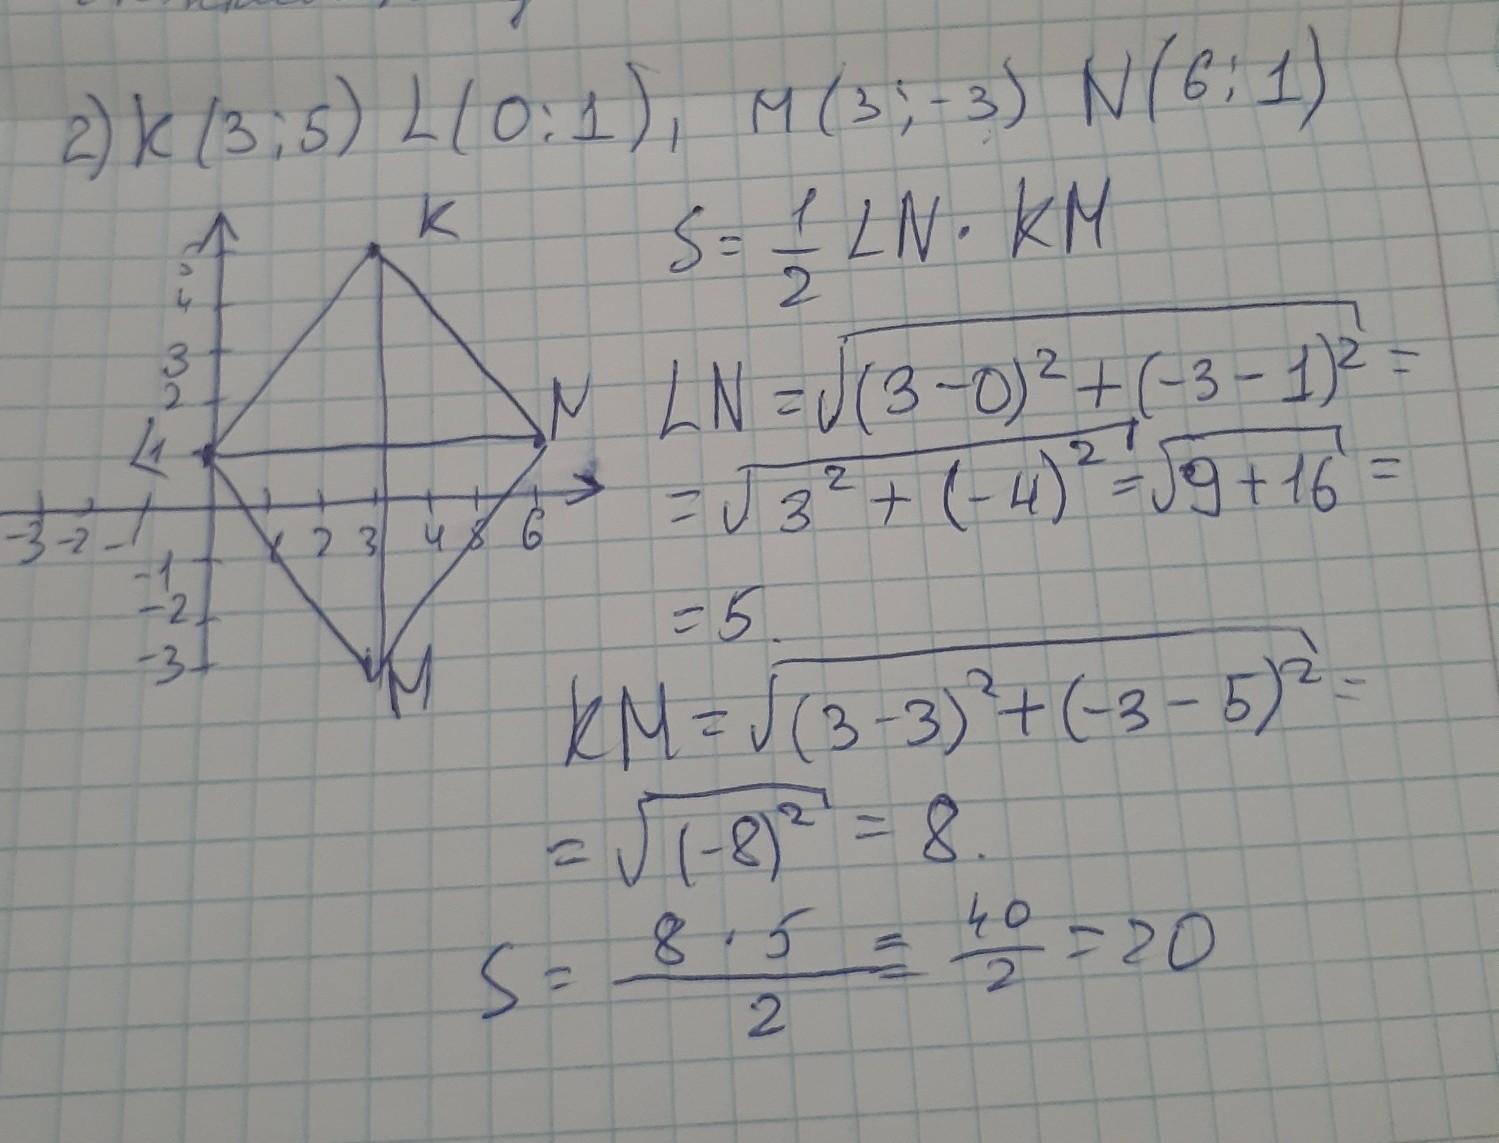 2) K(3;5) L(0;1), M(3;-3) N(6;1)
K
S = 1/2 LN · KM
5
4
3
2
L 1
N
-3 -2 -1 1 2 3 4 5 6
-1
-2
-3
M
LN = √((3-0)² + (-3-1)²) =
= √(3² + (-4)²) = √(9+16) =
= 5.
KM = √((3-3)² + (-3-5)²) =
= √((-8)²) = 8.
S = (8 · 5)/2 = 40/2 = 20